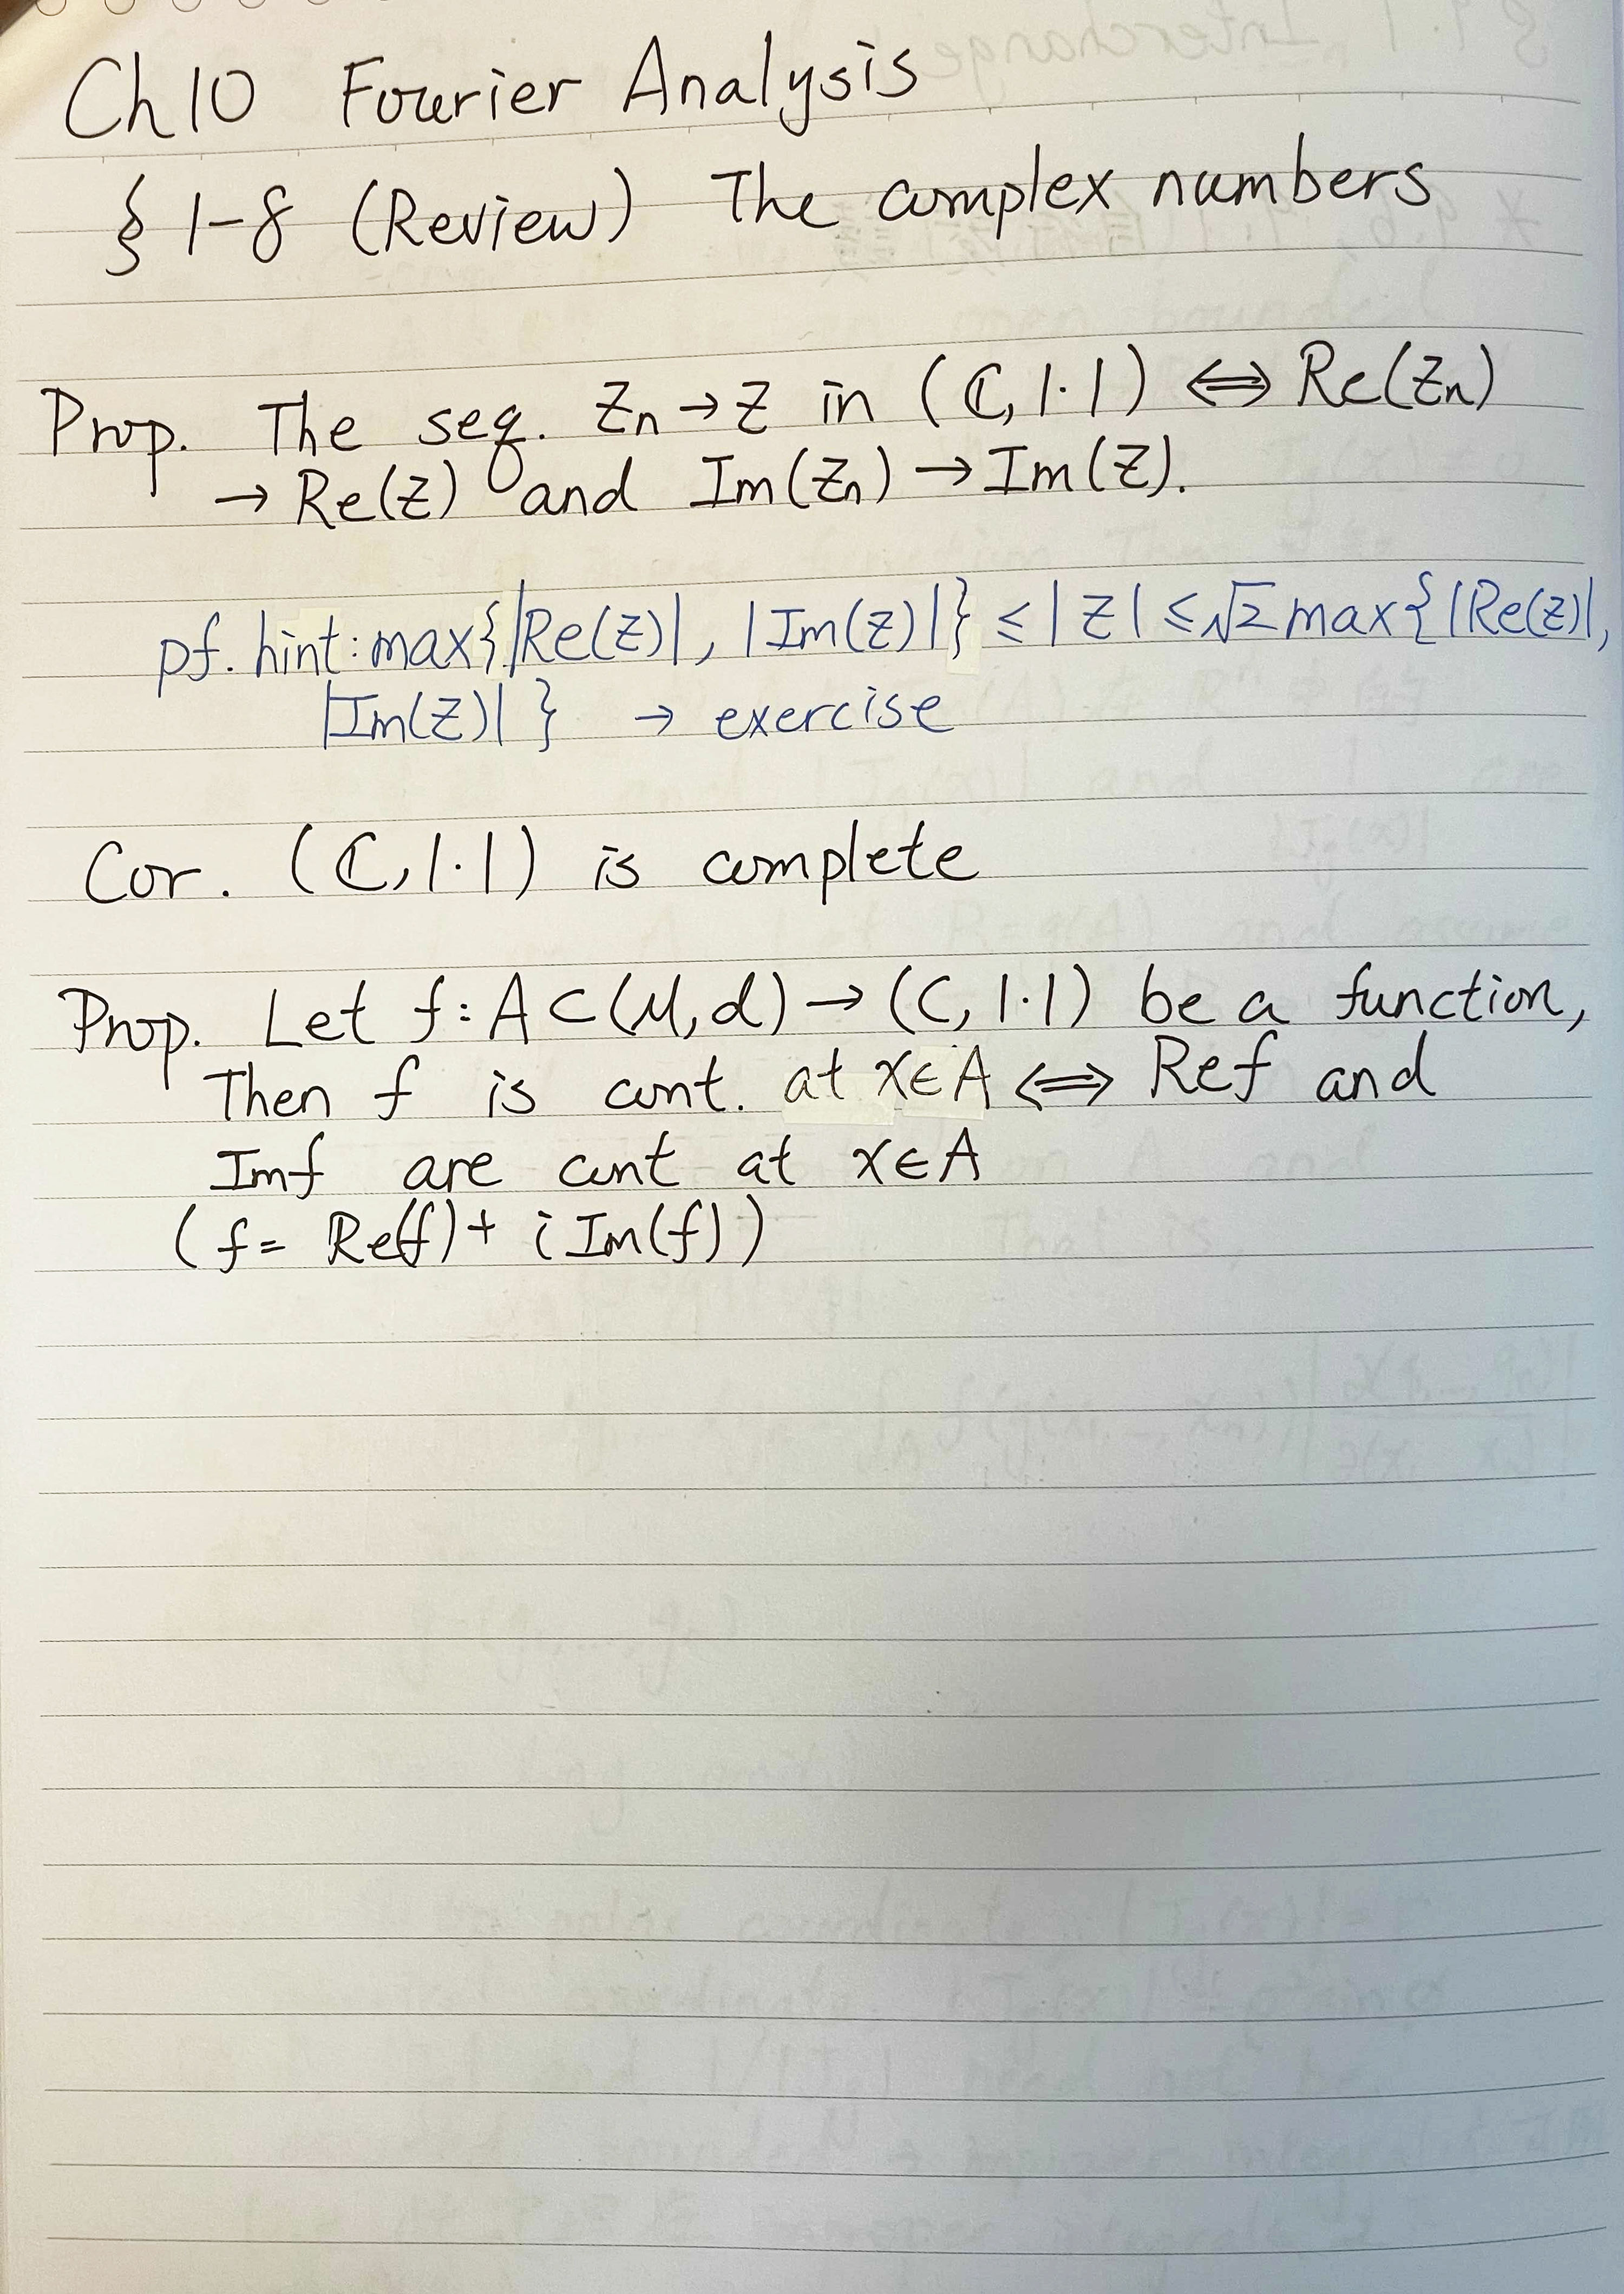 Ch10 Fourier Analysis
§ 1-8 (Review) The complex numbers
Prop. The seq. Zn → Z in (ℂ, |·|) ⟺ Re(Zn)
→ Re(Z) and Im(Zn) → Im(Z).
pf. hint: max{|Re(Z)|, |Im(Z)|} ≤ |Z| ≤ √2 max{|Re(Z)|,
|Im(Z)|} → exercise
Cor. (ℂ, |·|) is complete
Prop. Let f: A ⊂ (M, d) → (C, |·|) be a function,
Then f is cont. at x∈A ⟺ Ref and
Imf are cont at x∈A
(f = Re(f) + i Im(f))